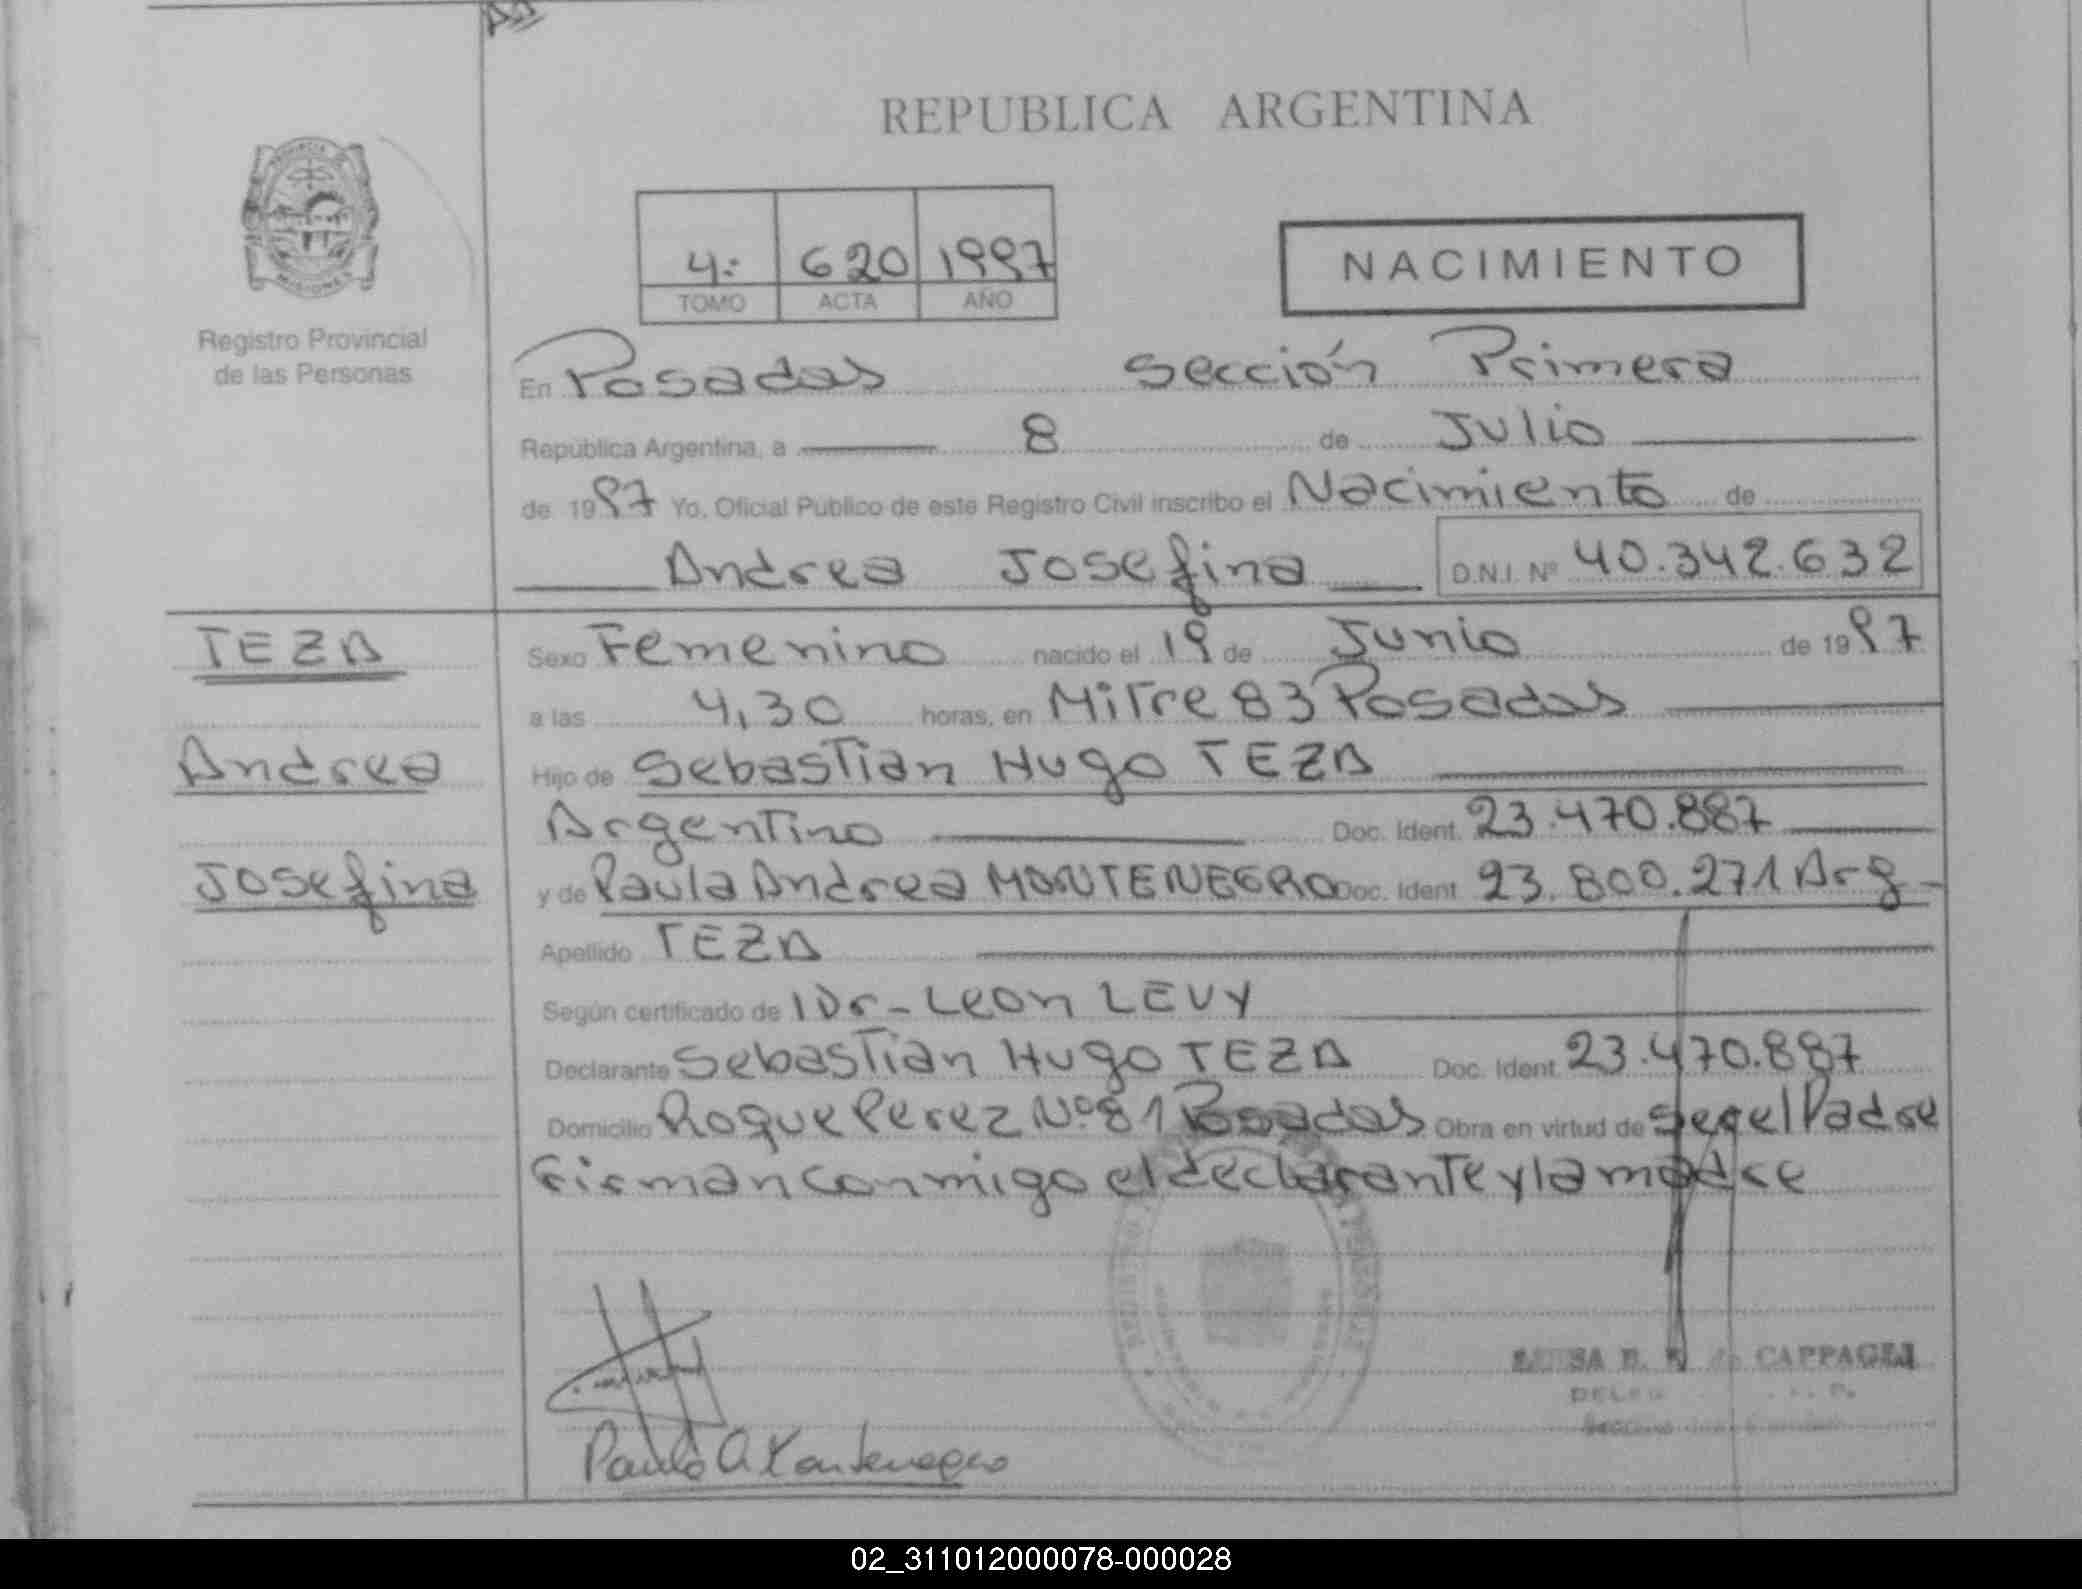 REPUBLICA ARGENTINA
PROVINCIA DE
MISIONES
Registro Provincial
de las Personas
4: 620 1997
TOMO ACTA AÑO
NACIMIENTO
En Posadas Sección Primera
República Argentina, a 8 de Julio
de 1997 Yo. Oficial Público de este Registro Civil inscribo el Nacimiento de
Andrea Josefina D.N.I. Nº 40.342.632
TEZA
Andrea
Josefina
Sexo Femenino nacido el 19 de Junio de 1997
a las 4,30 horas, en Mitre 83 Posadas
Hijo de Sebastian Hugo TEZA
Argentino Doc. Ident. 23.470.887
y de Paula Andrea MONTENEGRO Doc. Ident 23.800.271 Arg
Apellido TEZA
Según certificado de Dr- Leon LEVY
Declarante Sebastian Hugo TEZA Doc. Ident 23.470.887
Domicilio Roque Perez Nº 81 Posadas Obra en virtud de ser el Padre
Firman conmigo el declarante y la madre
CAPPAGLI
Paula A Montenegro
02_311012000078-000028